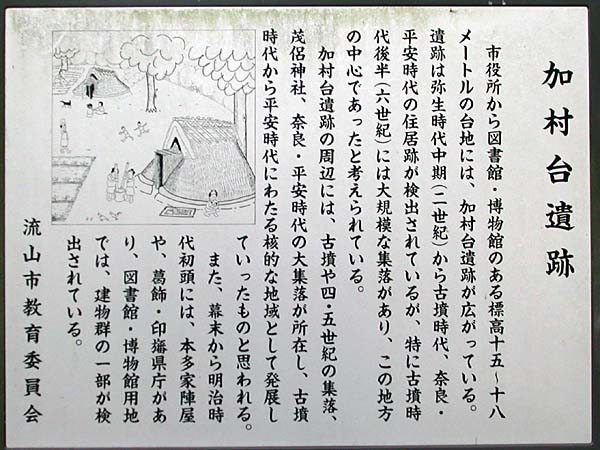 加村台遺跡
市役所から図書館・博物館のある標高十五～十八
メートルの台地には、加村台遺跡が広がっている。
遺跡は弥生時代中期(二世紀)から古墳時代、奈良・
平安時代の住居跡が検出されているが、特に古墳時
代後半(六世紀)には大規模な集落があり、この地方
の中心であったと考えられている。
加村台遺跡の周辺には、古墳や四・五世紀の集落、
茂侶神社、奈良・平安時代の大集落が所在し、古墳
時代から平安時代にわたる核的な地域として発展し
ていったものと思われる。
また、幕末から明治時
代初頭には、本多家陣屋
や、葛飾・印旛県庁があ
り、図書館・博物館用地
では、建物群の一部が検
出されている。
流山市教育委員会